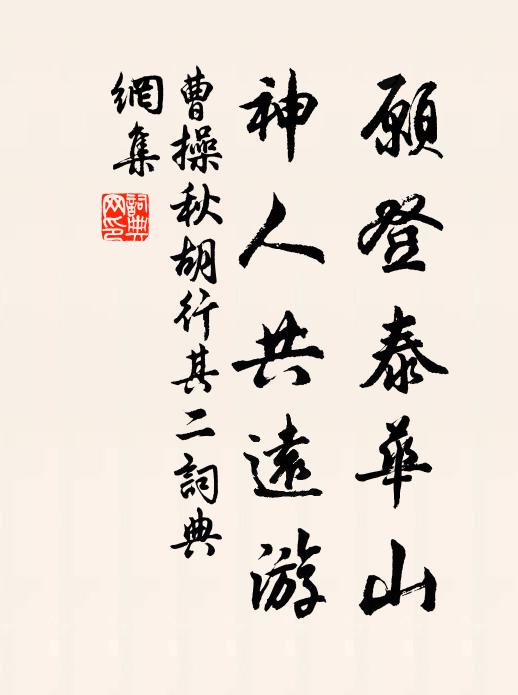 願登泰華山
神人共遠游
曹操秋胡行其二詞典
網集
詞典网印